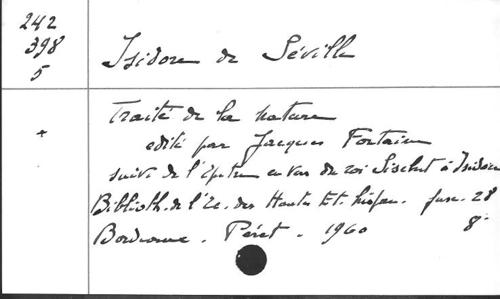 242
398
5
Isidore de Séville
+
Traité de la nature
édité par Jacques Fontaine
suivi de l'épitre en vers du roi Sisebut à Isidore
Biblioth. de l'Ec. des Hautes Et. hispan. fasc. 28
Bordeaux. Péret. 1960 8°